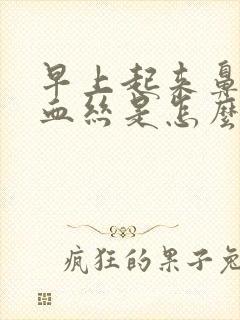 早上起来鼻
血丝是怎麽
疯狂的果子兔